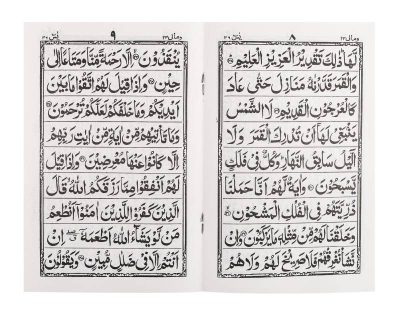 ومالی ٢٣ ٨ يٰسٓ
لَهَا ذٰلِكَ تَقْدِيْرُ الْعَزِيْزِ الْعَلِيْمِ
وَالْقَمَرَ قَدَّرْنٰهُ مَنَازِلَ حَتّٰى عَادَ
كَالْعُرْجُوْنِ الْقَدِيْمِ لَا الشَّمْسُ
يَنْۢبَغِيْ لَهَاۤ اَنْ تُدْرِكَ الْقَمَرَ وَلَا
الَّيْلُ سَابِقُ النَّهَارِ وَكُلٌّ فِيْ فَلَكٍ
يَّسْبَحُوْنَ وَاٰيَةٌ لَّهُمْ اَنَّا حَمَلْنَا
ذُرِّيَّتَهُمْ فِي الْفُلْكِ الْمَشْحُوْنِ
وَخَلَقْنَا لَهُمْ مِّنْ مِّثْلِهٖ مَا يَرْكَبُوْنَ وَاِنْ
نَّشَاْ نُغْرِقْهُمْ فَلَا صَرِيْخَ لَهُمْ وَلَا هُمْ
ومالی ٢٣ ٩ يٰسٓ
يُنْقَذُوْنَ اِلَّا رَحْمَةً مِّنَّا وَمَتَاعًا اِلٰى
حِيْنٍ وَاِذَا قِيْلَ لَهُمُ اتَّقُوْا مَا بَيْنَ
اَيْدِيْكُمْ وَمَا خَلْفَكُمْ لَعَلَّكُمْ تُرْحَمُوْنَ
وَمَا تَاْتِيْهِمْ مِّنْ اٰيَةٍ مِّنْ اٰيٰتِ رَبِّهِمْ
اِلَّا كَانُوْا عَنْهَا مُعْرِضِيْنَ وَاِذَا قِيْلَ
لَهُمْ اَنْفِقُوْا مِمَّا رَزَقَكُمُ اللّٰهُ قَالَ
الَّذِيْنَ كَفَرُوْا لِلَّذِيْنَ اٰمَنُوْۤا اَنُطْعِمُ
مَنْ لَّوْ يَشَآءُ اللّٰهُ اَطْعَمَهٗ اِنْ
اَنْتُمْ اِلَّا فِيْ ضَلٰلٍ مُّبِيْنٍ وَيَقُوْلُوْنَ